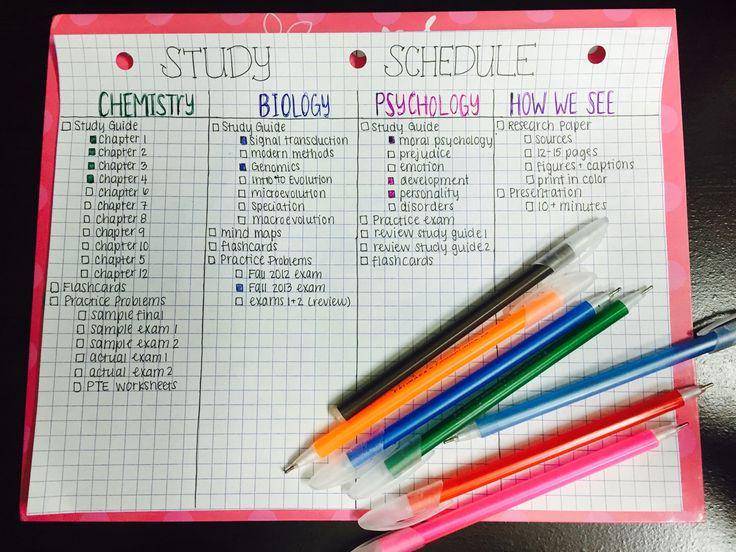 STUDY SCHEDULE
CHEMISTRY
Study Guide
Chapter 1
Chapter 2
Chapter 3
Chapter 4
Chapter 6
Chapter 7
Chapter 8
Chapter 9
Chapter 10
Chapter 5
Chapter 12
Flashcards
Practice Problems
sample final
sample exam 1
sample exam 2
actual exam 1
actual exam 2
PTE Worksheets
BIOLOGY
Study Guide
signal transduction
modern methods
Genomics
Intro to Evolution
microevolution
speciation
macroevolution
mind maps
flashcards
Practice Problems
Fall 2012 exam
Fall 2013 exam
exams 1+2 (review)
PSYCHOLOGY
Study Guide
moral psychology
prejudice
emotion
development
personality
disorders
Practice exam
review study guide 1
review study guide 2
flashcards
HOW WE SEE
Research Paper
sources
12-15 pages
figures + captions
print in color
Presentation
10+ minutes